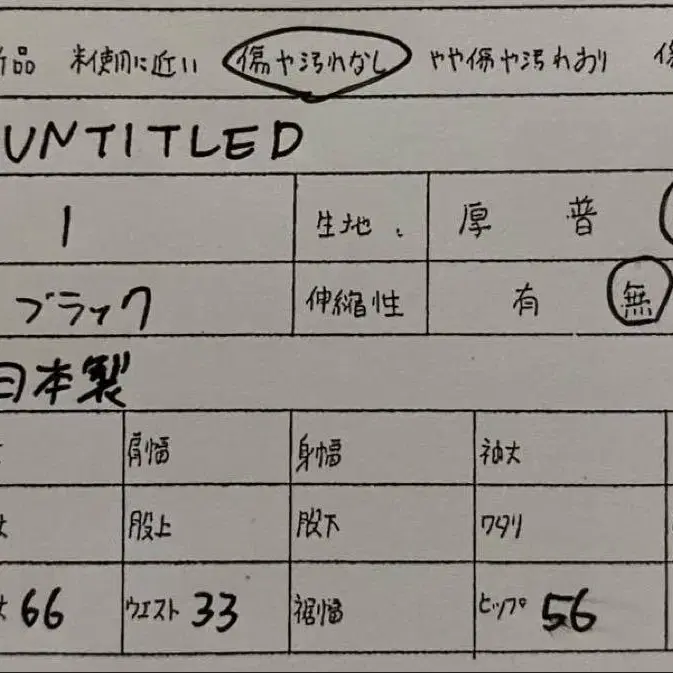 品 未使用に近い 傷や汚れなし やや傷や汚れあり
UNTITLED
1 生地: 厚 普
ブラック 伸縮性 有 無
日本製
肩幅 身幅 袖丈
丈 股上 股下 ワタリ
丈 66 ウエスト 33 裾幅 ヒップ 56